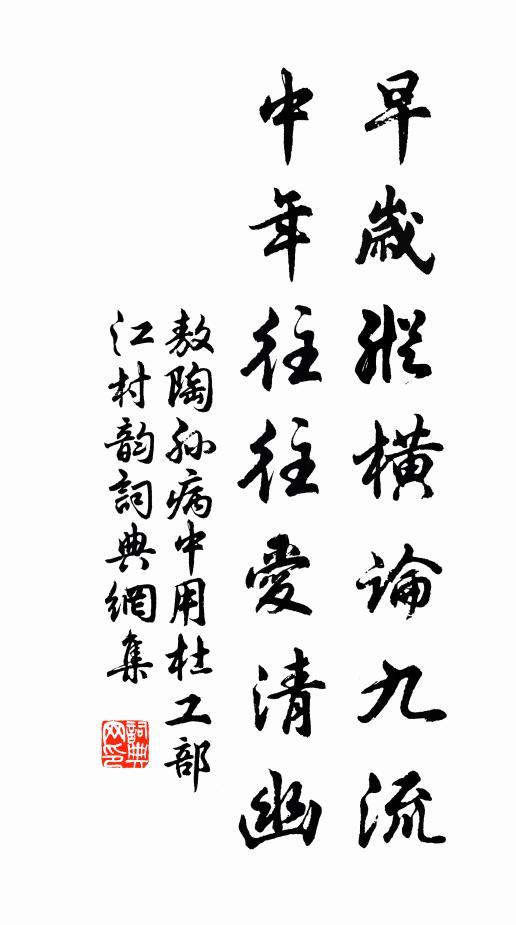 早歲縱橫論九流
中年往往愛清幽
敖陶孙病中用杜工部
江村韵詞典網集
詞典
网印